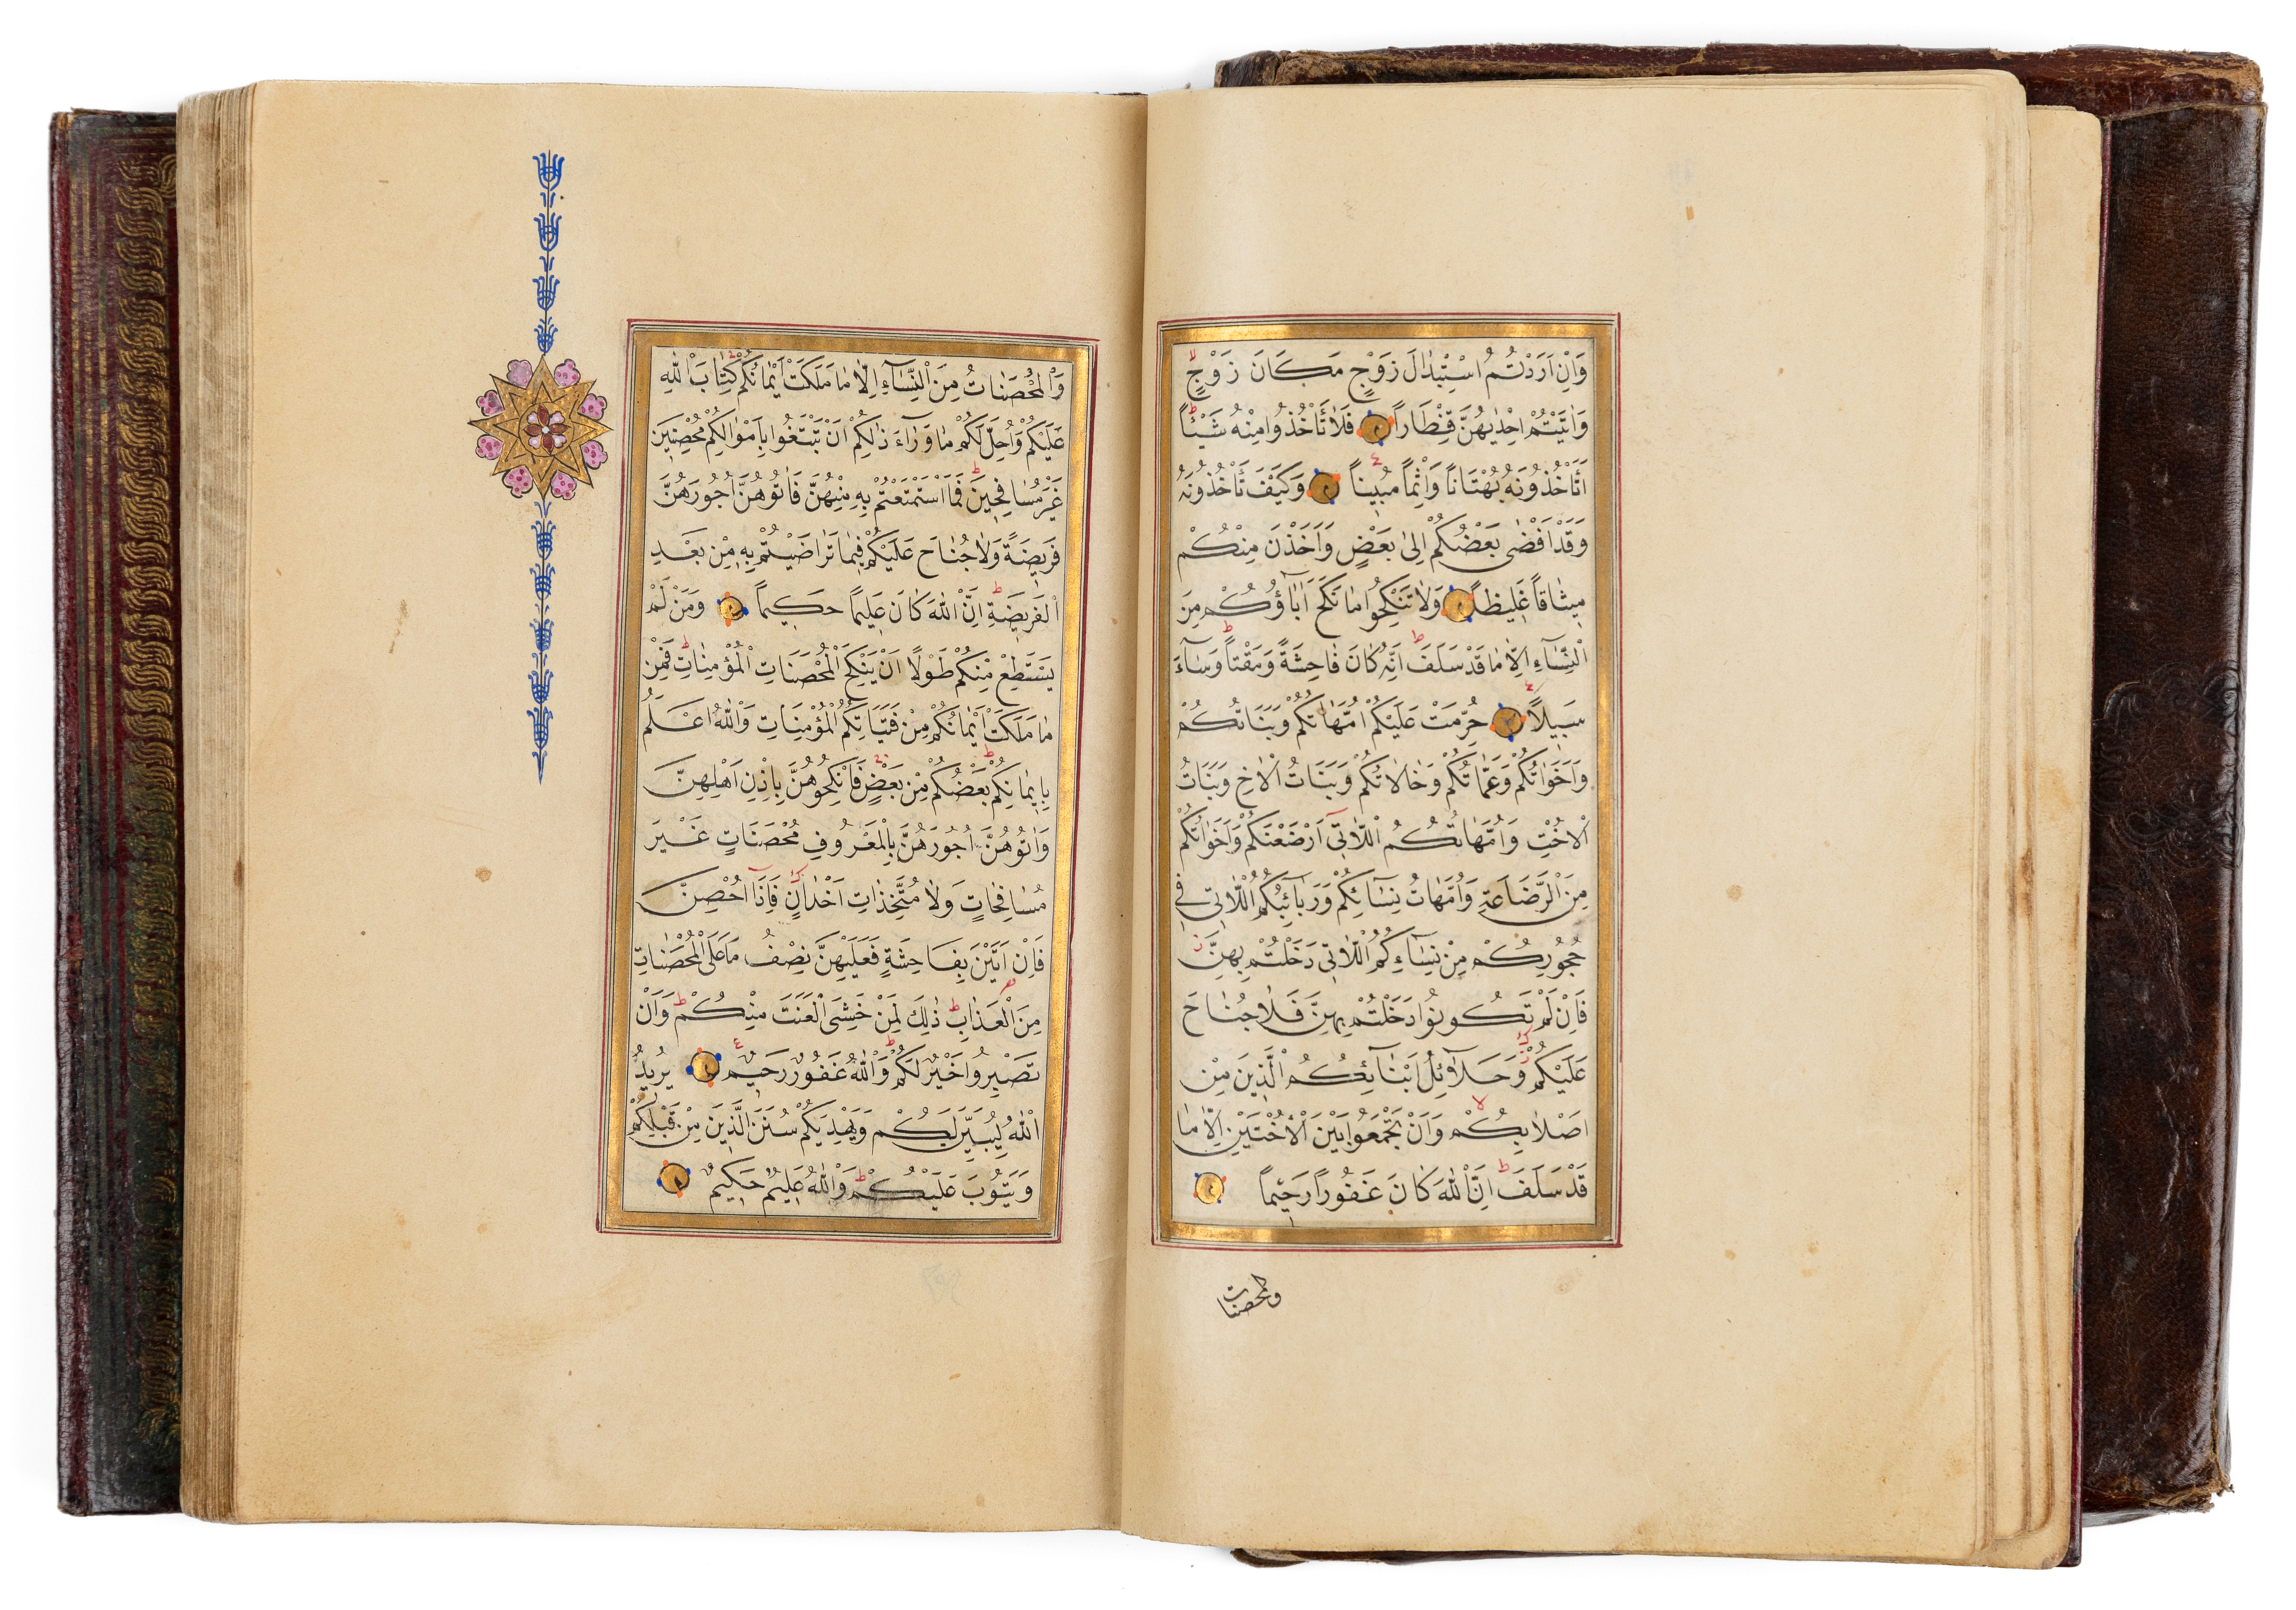 وَاِنْ اَرَدْتُمُ اسْتِبْدَالَ زَوْجٍ مَكَانَ زَوْجٍ
وَاٰتَيْتُمْ اِحْدٰيهُنَّ قِنْطَاراً فَلَا تَأْخُذُوا مِنْهُ شَيْئاً
اَتَأْخُذُونَهُ بُهْتَاناً وَاِثْماً مُبِيناً وَكَيْفَ تَأْخُذُونَهُ
وَقَدْ اَفْضٰى بَعْضُكُمْ اِلٰى بَعْضٍ وَاَخَذْنَ مِنْكُمْ
مِيثَاقاً غَلِيظاً وَلَا تَنْكِحُوا مَا نَكَحَ اٰبَاؤُكُمْ مِنَ
النِّسَاءِ اِلَّا مَا قَدْ سَلَفَ اِنَّهُ كَانَ فَاحِشَةً وَمَقْتاً وَسَاءَ
سَبِيلاً حُرِّمَتْ عَلَيْكُمْ اُمَّهَاتُكُمْ وَبَنَاتُكُمْ
وَاَخَوَاتُكُمْ وَعَمَّاتُكُمْ وَخَالَاتُكُمْ وَبَنَاتُ الْاَخِ وَبَنَاتُ
الْاُخْتِ وَاُمَّهَاتُكُمُ الّٰلَاتِي اَرْضَعْنَكُمْ وَاَخَوَاتُكُمْ
مِنَ الرَّضَاعَةِ وَاُمَّهَاتُ نِسَائِكُمْ وَرَبَائِبُكُمُ الّٰلَاتِي فِي
حُجُورِكُمْ مِنْ نِسَاءِكُمُ الّٰلَاتِي دَخَلْتُمْ بِهِنَّ
فَاِنْ لَمْ تَكُونُوا دَخَلْتُمْ بِهِنَّ فَلَا جُنَاحَ
عَلَيْكُمْ وَحَلَائِلُ اَبْنَائِكُمُ الَّذِينَ مِنْ
اَصْلَابِكُمْ وَاَنْ تَجْمَعُوا بَيْنَ الْاُخْتَيْنِ اِلَّا مَا
قَدْ سَلَفَ اِنَّ اللّٰهَ كَانَ غَفُوراً رَحِيماً
والمحصنات
وَالْمُحْصَنَاتُ مِنَ النِّسَاءِ اِلَّا مَا مَلَكَتْ اَيْمَانُكُمْ كِتَابَ اللّٰهِ
عَلَيْكُمْ وَاُحِلَّ لَكُمْ مَا وَرَاءَ ذٰلِكُمْ اَنْ تَبْتَغُوا بِاَمْوَالِكُمْ مُحْصِنِينَ
غَيْرَ مُسَافِحِينَ فَمَا اسْتَمْتَعْتُمْ بِهِ مِنْهُنَّ فَاٰتُوهُنَّ اُجُورَهُنَّ
فَرِيضَةً وَلَا جُنَاحَ عَلَيْكُمْ فِيمَا تَرَاضَيْتُمْ بِهِ مِنْ بَعْدِ
الْفَرِيضَةِ اِنَّ اللّٰهَ كَانَ عَلِيماً حَكِيماً وَمَنْ لَمْ
يَسْتَطِعْ مِنْكُمْ طَوْلاً اَنْ يَنْكِحَ الْمُحْصَنَاتِ الْمُؤْمِنَاتِ فَمِنْ
مَا مَلَكَتْ اَيْمَانُكُمْ مِنْ فَتَيَاتِكُمُ الْمُؤْمِنَاتِ وَاللّٰهُ اَعْلَمُ
بِاِيمَانِكُمْ بَعْضُكُمْ مِنْ بَعْضٍ فَانْكِحُوهُنَّ بِاِذْنِ اَهْلِهِنَّ
وَاٰتُوهُنَّ اُجُورَهُنَّ بِالْمَعْرُوفِ مُحْصَنَاتٍ غَيْرَ
مُسَافِحَاتٍ وَلَا مُتَّخِذَاتِ اَخْدَانٍ فَاِذَا اُحْصِنَّ
فَاِنْ اَتَيْنَ بِفَاحِشَةٍ فَعَلَيْهِنَّ نِصْفُ مَا عَلَى الْمُحْصَنَاتِ
مِنَ الْعَذَابِ ذٰلِكَ لِمَنْ خَشِيَ الْعَنَتَ مِنْكُمْ وَاَنْ
تَصْبِرُوا خَيْرٌ لَكُمْ وَاللّٰهُ غَفُورٌ رَحِيمٌ يُرِيدُ
اللّٰهُ لِيُبَيِّنَ لَكُمْ وَيَهْدِيَكُمْ سُنَنَ الَّذِينَ مِنْ قَبْلِكُمْ
وَيَتُوبَ عَلَيْكُمْ وَاللّٰهُ عَلِيمٌ حَكِيمٌ